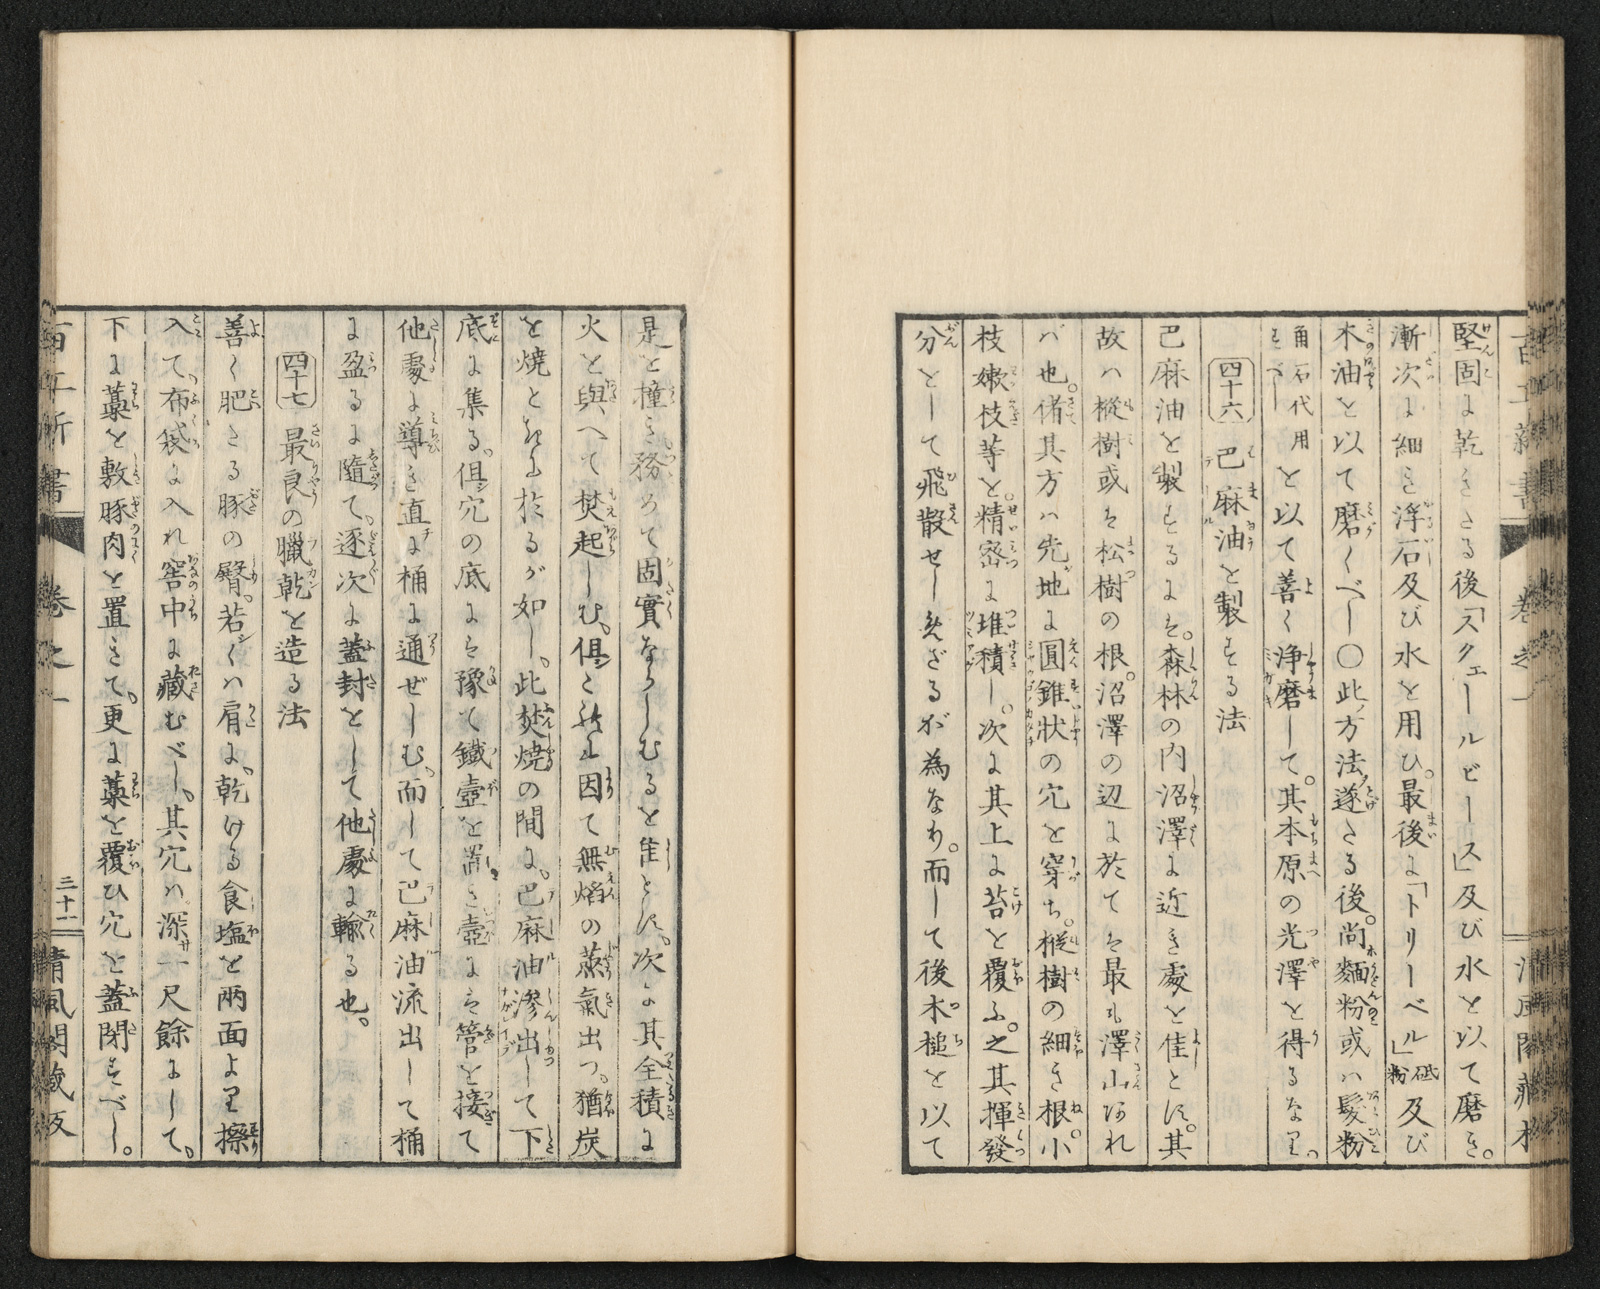 堅固に乾きたる後「スクェールビース」及び水を以て磨き。
漸次に細き浮石及び水を用ひ。最後に「トリーベル」砥粉及び
木油を以て磨くべし〇此方法遂たる後。尚麺粉或ハ髪粉
角石代用を以て善く浄磨して。其本原の光澤を得るなり。
四十六 巴麻油を製する法
巴麻油を製するには。森林の内沼澤に近き處を佳とす。其
故ハ樅樹或は松樹の根。沼澤の辺に於ては最も澤山なれ
バ也。偖其方ハ先地に圓錐状の穴を穿ち。樅樹の細き根。小
枝嫩枝等を。精密に堆積し。次に其上に苔を覆ふ。之其揮發
分をして飛散せしめざるが為なり。而して後木槌を以て
是を撞き務めて固實ならしむるを佳とす。次に其全積に
火を與へて焚起しむ。俱之に因て無焰の蒸氣出つ。猶炭
を焼ときに於るが如し。此焚焼の間に。巴麻油滲出して下
底に集る。俱穴の底には豫て鐵壺を置き壺には管を接て
他處に導き直に桶に通ぜしむ。而して巴麻油流出して桶
に盈るに隨て。逐次に蓋封をして他處に輸る也。
四十七 最良の臘乾を造る法
善く肥たる豚の臀。若くハ肩に。乾ける食塩を兩面より擦
入て。布袋に入れ窖中に藏むべし。其穴ハ深一尺餘にして。
下に藁を敷豚肉を置きて。更に藁を覆ひ穴を蓋閉すべし。
百工新書 卷之一 三十二 清風閣藏板